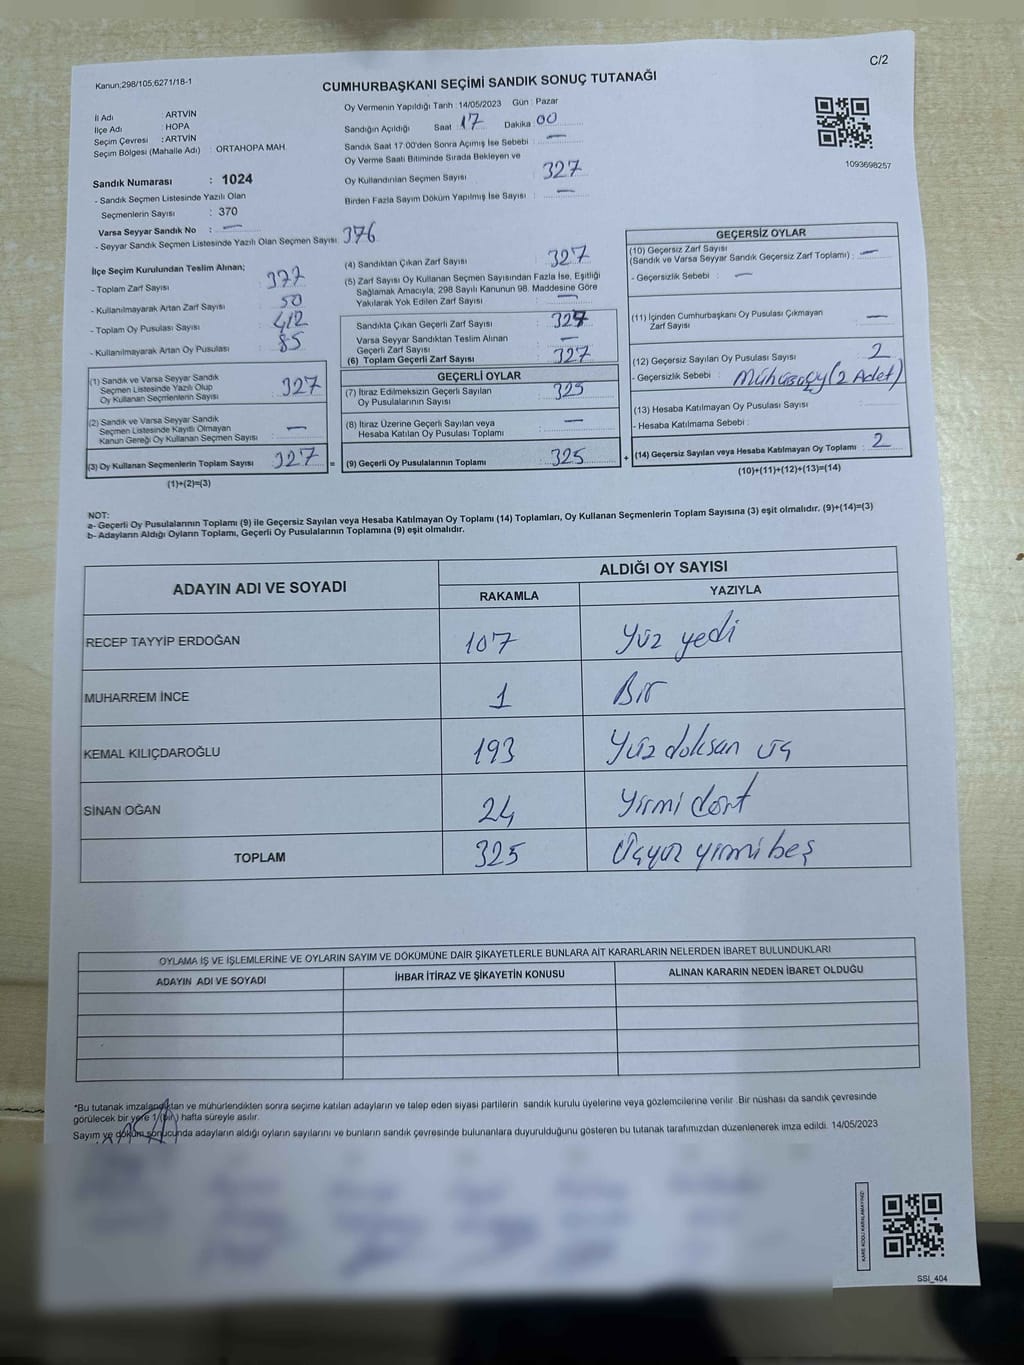 Kanun,298/105,6271/18-1
C/2
CUMHURBAŞKANI SEÇİMİ SANDIK SONUÇ TUTANAĞI
İl Adı : ARTVİN
İlçe Adı : HOPA
Seçim Çevresi : ARTVİN
Seçim Bölgesi (Mahalle Adı) : ORTAHOPA MAH
Sandık Numarası : 1024
- Sandık Seçmen Listesinde Yazılı Olan
Seçmenlerin Sayısı : 370
Varsa Seyyar Sandık No : —
- Seyyar Sandık Seçmen Listesinde Yazılı Olan Seçmen Sayısı: 376
Oy Vermenin Yapıldığı Tarih : 14/05/2023 Gün : Pazar
Sandığın Açıldığı Saat 17 Dakika 00
Sandık Saat 17:00'den Sonra Açımış İse Sebebi : —
Oy Verme Saati Bitiminde Sırada Bekleyen ve
Oy Kullandırılan Seçmen Sayısı : 327
Birden Fazla Sayım Döküm Yapılmış İse Sayısı : —
1093698257
İlçe Seçim Kurulundan Teslim Alınan;
- Toplam Zarf Sayısı : 377
- Kullanılmayarak Artan Zarf Sayısı : 50
- Toplam Oy Pusulası Sayısı : 412
- Kullanılmayarak Artan Oy Pusulası : 85
(1) Sandık ve Varsa Seyyar Sandık
Seçmen Listesinde Yazılı Olup
Oy Kullanan Seçmenlerin Sayısı : 327
(2) Sandık ve Varsa Seyyar Sandık
Seçmen Listesinde Kayıtlı Olmayan
Kanun Gereği Oy Kullanan Seçmen Sayısı : —
(3) Oy Kullanan Seçmenlerin Toplam Sayısı : 327 =
(1)+(2)=(3)
(4) Sandıktan Çıkan Zarf Sayısı : 327
(5) Zarf Sayısı Oy Kullanan Seçmen Sayısından Fazla İse, Eşitliği
Sağlamak Amacıyla, 298 Sayılı Kanunun 98. Maddesine Göre
Yakılarak Yok Edilen Zarf Sayısı : —
Sandıkta Çıkan Geçerli Zarf Sayısı : 327
Varsa Seyyar Sandıktan Teslim Alınan
Geçerli Zarf Sayısı : —
(6) Toplam Geçerli Zarf Sayısı : 327
GEÇERLİ OYLAR
(7) İtiraz Edilmeksizin Geçerli Sayılan
Oy Pusulalarının Sayısı : 325
(8) İtiraz Üzerine Geçerli Sayılan veya
Hesaba Katılan Oy Pusulası Toplamı : —
(9) Geçerli Oy Pusulalarının Toplamı : 325 +
GEÇERSİZ OYLAR
(10) Geçersiz Zarf Sayısı
(Sandık ve Varsa Seyyar Sandık Geçersiz Zarf Toplamı) : —
- Geçersizlik Sebebi : —
(11) İçinden Cumhurbaşkanı Oy Pusulası Çıkmayan
Zarf Sayısı : —
(12) Geçersiz Sayılan Oy Pusulası Sayısı : 2
- Geçersizlik Sebebi : (2 Adet)
(13) Hesaba Katılmayan Oy Pusulası Sayısı :
- Hesaba Katılmama Sebebi :
(14) Geçersiz Sayılan veya Hesaba Katılmayan Oy Toplamı : 2
(10)+(11)+(12)+(13)=(14)
NOT:
a- Geçerli Oy Pusulalarının Toplamı (9) ile Geçersiz Sayılan veya Hesaba Katılmayan Oy Toplamı (14) Toplamları, Oy Kullanan Seçmenlerin Toplam Sayısına (3) eşit olmalıdır. (9)+(14)=(3)
b- Adayların Aldığı Oyların Toplamı, Geçerli Oy Pusulalarının Toplamına (9) eşit olmalıdır.
ADAYIN ADI VE SOYADI
ALDIĞI OY SAYISI
RAKAMLA YAZIYLA
RECEP TAYYİP ERDOĞAN 107 Yüz yedi
MUHARREM İNCE 1 Bir
KEMAL KILIÇDAROĞLU 193 Yüz doksan üç
SİNAN OĞAN 24 Yirmi dört
TOPLAM 325 Üçyüz yirmi beş
OYLAMA İŞ VE İŞLEMLERİNE VE OYLARIN SAYIM VE DÖKÜMÜNE DAİR ŞİKAYETLERLE BUNLARA AİT KARARLARIN NELERDEN İBARET BULUNDUKLARI
ADAYIN ADI VE SOYADI İHBAR İTİRAZ VE ŞİKAYETİN KONUSU ALINAN KARARIN NEDEN İBARET OLDUĞU
*Bu tutanak imzalandıktan ve mühürlendikten sonra seçime katılan adayların ve talep eden siyasi partilerin sandık kurulu üyelerine veya gözlemcilerine verilir. Bir nüshası da sandık çevresinde
görülecek bir yere 1 (bir) hafta süreyle asılır.
Sayım ve döküm sonucunda adayların aldığı oyların sayılarını ve bunların sandık çevresinde bulunanlara duyurulduğunu gösteren bu tutanak tarafımızdan düzenlenerek imza edildi. 14/05/2023
KARE KODU KARALAMAYINIZ!
SSI_404